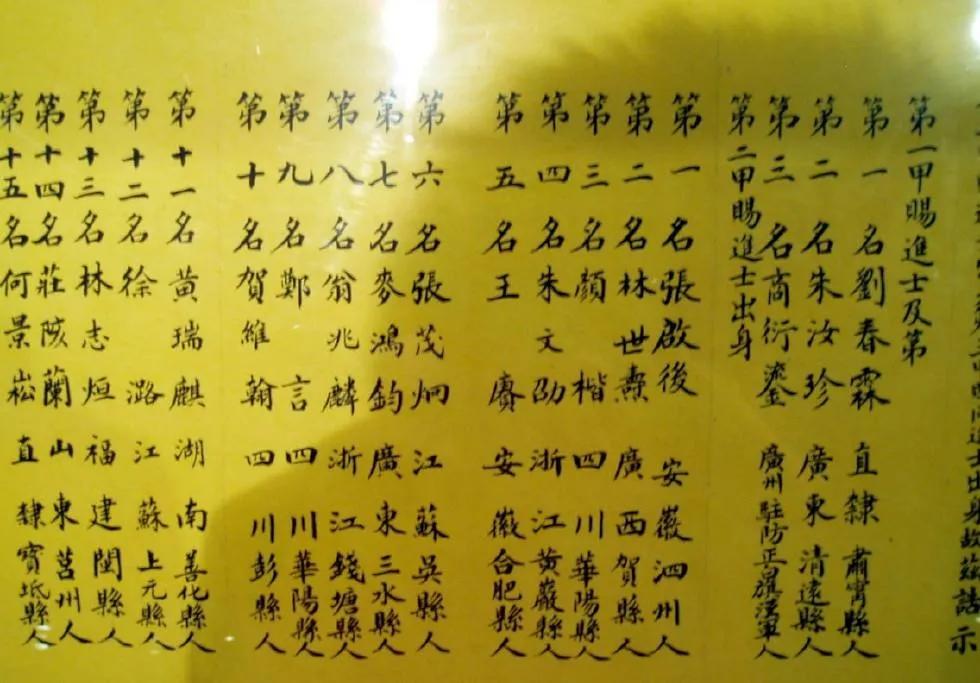 故茲誥示
第一甲賜進士及第
第一名劉春霖直隸肅寧縣人
第二名朱汝珍廣東清遠縣人
第三名商衍鎏廣州駐防正白旗漢軍人
第二甲賜進士出身
第一名張啟後安徽泗州人
第二名林世燾廣西賀縣人
第三名顏楷四川華陽縣人
第四名朱文劭浙江黃巖縣人
第五名王賡安徽合肥縣人
第六名張茂炯江蘇吳縣人
第七名麥鴻鈞廣東三水縣人
第八名翁兆麟浙江錢塘縣人
第九名鄭言四川華陽縣人
第十名賀維翰四川彭縣人
第十一名黃瑞麒湖南善化縣人
第十二名徐潞江蘇上元縣人
第十三名林志烜福建閩縣人
第十四名莊陔蘭山東莒州人
第十五名何景崧直隸寶坻縣人